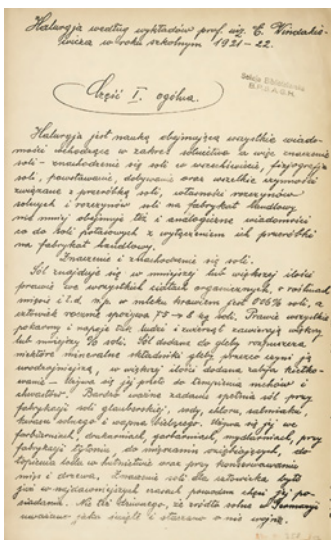 Halurgja według wykładów prof. inż. E. Windakie-
wicza w roku szkolnym 1921-22.
Część I. ogólna.
Halurgja jest nauką obejmującą wszystkie wiado-
mości wchodzące w zakres solnictwa a więc znaczenie
soli - znachodzenie się soli we wszechświecie, fizjografję
soli, powstawanie, dobywanie oraz wszelkie czynności
związane z przeróbką soli, własności rozczynów
solnych i rozczynów soli na fabrykat handlowy
nad mniej obejmuje też i analogiczne wiadomości
co do soli potasowych z wyłączeniem ich przeróbki
na fabrykat handlowy.
Znaczenie i znachodzenie się soli.
Sól znajduje się w mniejszej lub większej ilości
prawie we wszystkich ciałach organicznych, w roślinach
mięsie i.t.d. n.p. w mleku krowiem jest 0·06% soli, a
człowiek rocznie spożywa 7·5 - 8 kg soli. Prawie wszystkie
pokarmy i napoje tak ludzi i zwierząt zawierają większy
lub mniejszy % soli. Sól dodana do gleby rozpuszcza
niektóre mineralne składniki gleby przezco czyni ją
urodzajniejszą, w większej ilości dodana zabija kiełko-
wanie - Używa się jej przeto do tępienia mchów i
chwastów. Bardzo ważne zadanie spełnia sól przy
fabrykacji soli glauberskiej, sody, chloru, salmiaku,
kwasu solnego i wapna bielącego. Używa się jej we
farbiarniach, drukarniach, garbarniach, mydlarniach, przy
fabrykacji tytoniu, do mieszanin oziębiających, do
topienia lodu w hutnictwie oraz przy konserwowaniu
mięs i drzewa. Znaczenie soli dla człowieka było
już w najdawniejszych czasach powodem chęci jej po-
siadania. Nic też dziwnego, że źródła solne w Germanji
uważano jako święte i staczano o nie wojnę.